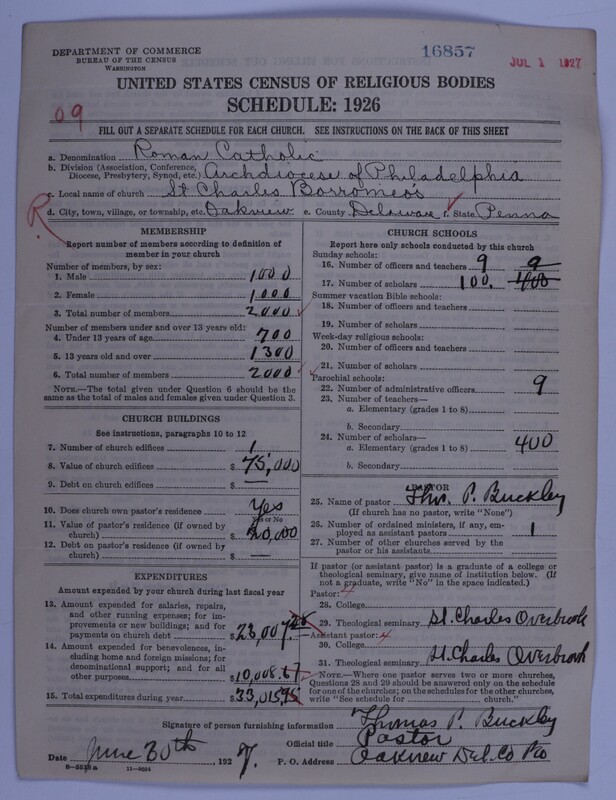 DEPARTMENT OF COMMERCE
BUREAU OF THE CENSUS
WASHINGTON
16857
JUL 1 1927
UNITED STATES CENSUS OF RELIGIOUS BODIES
SCHEDULE: 1926
09
FILL OUT A SEPARATE SCHEDULE FOR EACH CHURCH. SEE INSTRUCTIONS ON THE BACK OF THIS SHEET
a. Denomination Roman Catholic
b. Division (Association, Conference, Diocese, Presbytery, Synod, etc.) Archdiocese of Philadelphia
c. Local name of church St Charles Borromeo's
R
d. City, town, village, or township, etc. Oakview e. County Delaware f. State Penna
MEMBERSHIP
Report number of members according to definition of
member in your church
Number of members, by sex:
1. Male 1000
2. Female 1000
3. Total number of members 2000
Number of members under and over 13 years old:
4. Under 13 years of age 700
5. 13 years old and over 1300
6. Total number of members 2000
NOTE.—The total given under Question 6 should be
the same as the total of males and females given under Question 3.
CHURCH BUILDINGS
See instructions, paragraphs 10 to 12
7. Number of church edifices 1
8. Value of church edifices $75,000
9. Debt on church edifices $ —
10. Does church own pastor's residence Yes
Yes or No
11. Value of pastor's residence (if owned by
church) $20,000
12. Debt on pastor's residence (if owned by
church) $ —
EXPENDITURES
Amount expended by your church during last fiscal year
13. Amount expended for salaries, repairs,
and other running expenses; for im-
provements or new buildings; and for
payments on church debt $23,007
14. Amount expended for benevolences, in-
cluding home and foreign missions; for
denominational support; and for all
other purposes $10,008.67
15. Total expenditures during year $33,015.95
CHURCH SCHOOLS
Report here only schools conducted by this church
Sunday schools:
16. Number of officers and teachers 9 9
17. Number of scholars 100. 400
Summer vacation Bible schools:
18. Number of officers and teachers
19. Number of scholars
Week-day religious schools:
20. Number of officers and teachers
21. Number of scholars
Parochial schools:
22. Number of administrative officers 9
23. Number of teachers—
a. Elementary (grades 1 to 8)
b. Secondary
24. Number of scholars—
a. Elementary (grades 1 to 8) 400
b. Secondary
PASTOR
25. Name of pastor Thos. P. Buckley
(If church has no pastor, write "None")
26. Number of ordained ministers, if any, em-
ployed as assistant pastors 1
27. Number of other churches served by the
pastor or his assistants
If pastor (or assistant pastor) is a graduate of a college or
theological seminary, give name of institution below. (If
not a graduate, write "No" in the space indicated.)
Pastor: 4
28. College
29. Theological seminary St. Charles Overbrook
Assistant pastor: 4
30. College
31. Theological seminary St. Charles Overbrook
NOTE.—Where one pastor serves two or more churches,
Questions 28 and 29 should be answered only on the schedule
for one of the churches; on the schedules for the other churches,
write "See schedule for church."
Signature of person furnishing information Thomas P. Buckley
Official title Pastor
Date June 30th 1927. P. O. Address Oakview Del. Co Pa
11—9034